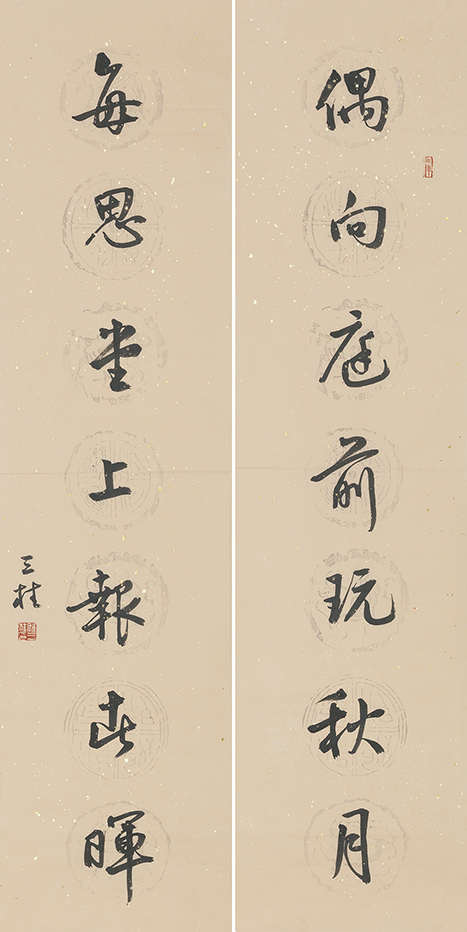 偶向庭前玩秋月
每思堂上報春暉
三桂